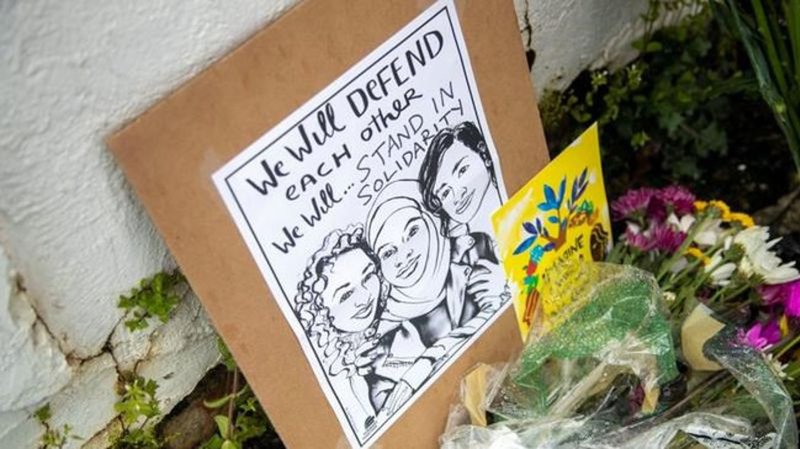 We Will DEFEND
EACH other
We Will... STAND IN
SOLIDARITY
IMAGINE